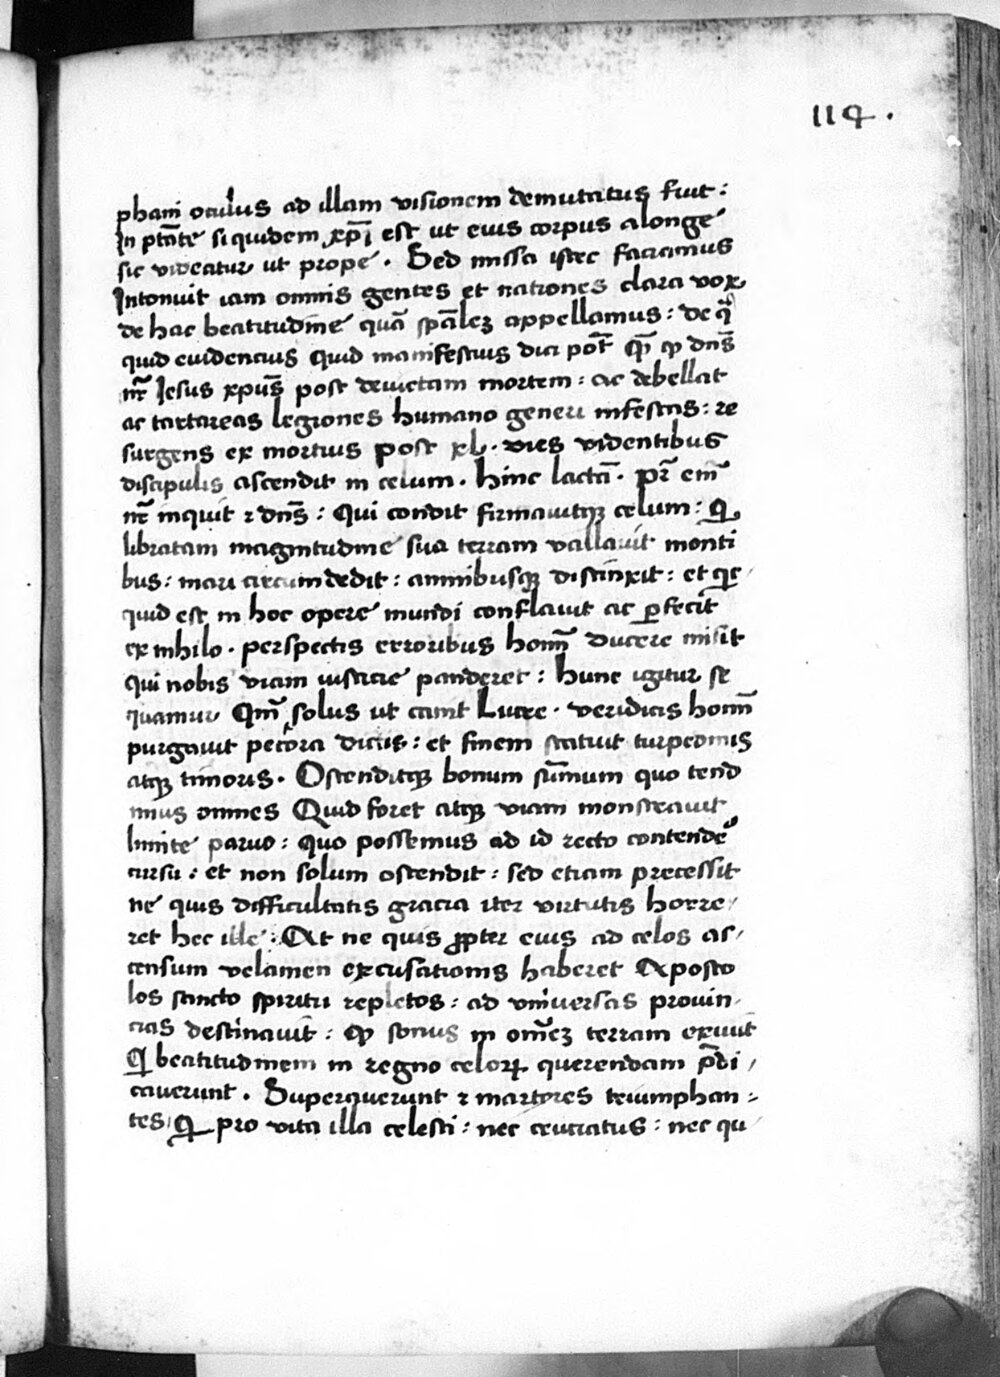 114.
phani oculus ad illam visionem demutatus fuit:
In ptāte siquidem xpī est ut eius corpus alonge
sic videatur ut prope. Sed missa istec faciamus
Intonuit iam omnis gentes et nationes clara vox
de hac beatitudine quā spālez appellamus: de q̄
quid evidencius quid manifestius dici pōt q̄ ꝙ dn̄s
nr̄ Iesus xpūs post devictam mortem: ac debellat
ac tartareas legiones humano generi infestas: re
surgens ex mortuis post xl. dies videntibus
discipulis ascendit in celum. hinc lactā. pr̄ em̄
nr̄ inquit ⁊ dn̄s: Qui condit firmavitqꝫ celum: Qi
libratam magnitudine sua terram vallavit monti
bus: mari circumdedit: amnibusqꝫ distinxit: et qc
quid est in hoc opere mundi conflavit ac ꝑfecit
ex nihilo. perspectis erroribus homī ducere misit
qui nobis viam iusticie panderet: hunc igitur se
quamur Qm̄ solus ut canit Lucre. veridicis homī
purgavit pectora dictis: et finem statuit turpedinis
atqꝫ timoris. Ostenditqꝫ bonum sūmum quo tend
imus omnes Quid foret atqꝫ viam monstravit
limite parvo: quo possemus ad id recto contende
cursu: et non solum ostendit: sed etiam precessit
ne quis difficultatis gracia iter virtutis horre
ret hec ille: At ne quis ꝓpter eius ad celos as
censum velamen excusationis haberet Aposto
los sancto spiritu repletos: ad universas provin
cias destinavit: ꝙ sonus in om̄ez terram exivit
Qi beatitudinem in regno celoꝝ querendam p̄di
caverunt. Superaverunt ⁊ martyres triumphan
tes Qi pro vita illa celesti: nec cruciatus: nec qu